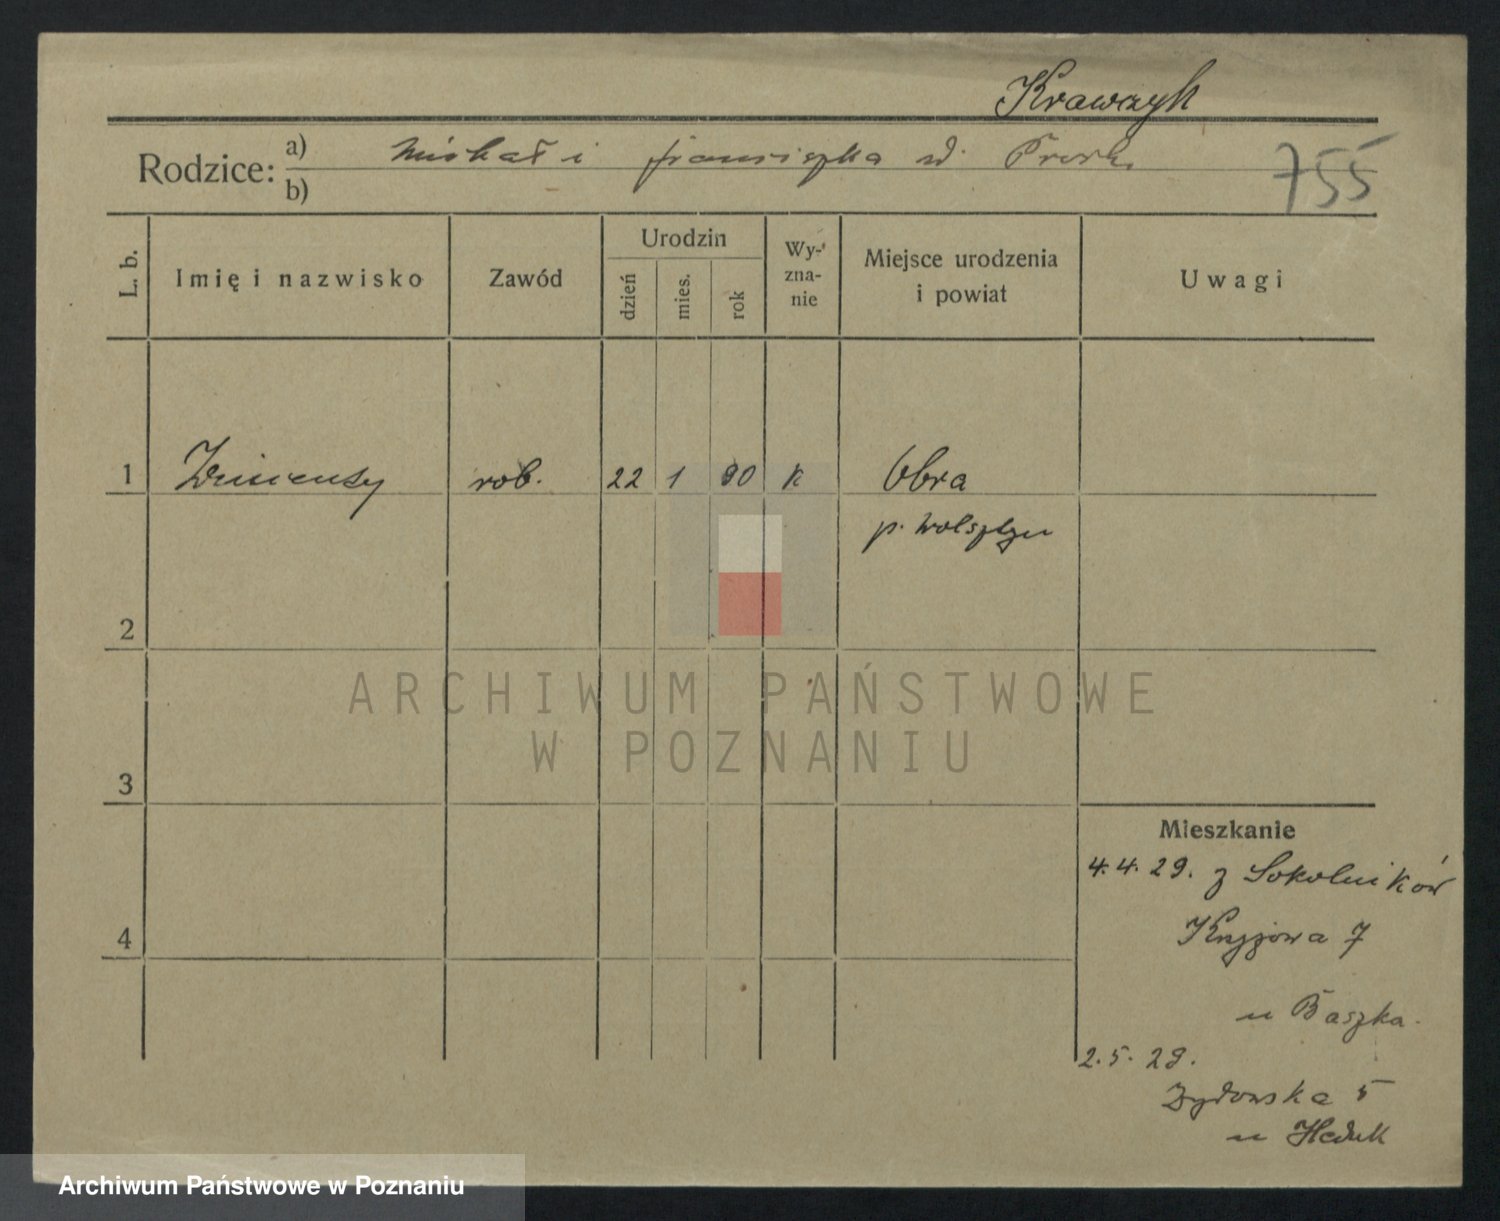 Krawczyk
Rodzice: a) Michał i franciszka d.
b)
755
L. b.
Imię i nazwisko
Zawód
Urodzin
dzień
mies.
rok
Wy-
zna-
nie
Miejsce urodzenia
i powiat
Uwagi
1 Wincenty rob. 22 1 90 k Obra
p. Wolsztyn
2
ARCHIWUM PAŃSTWOWE
W POZNANIU
3
Mieszkanie
4.4.29. z Sokolników
4
Krzyżowa 7
u Baszka.
2.5.29.
Żydowska 5
u
Archiwum Państwowe w Poznaniu